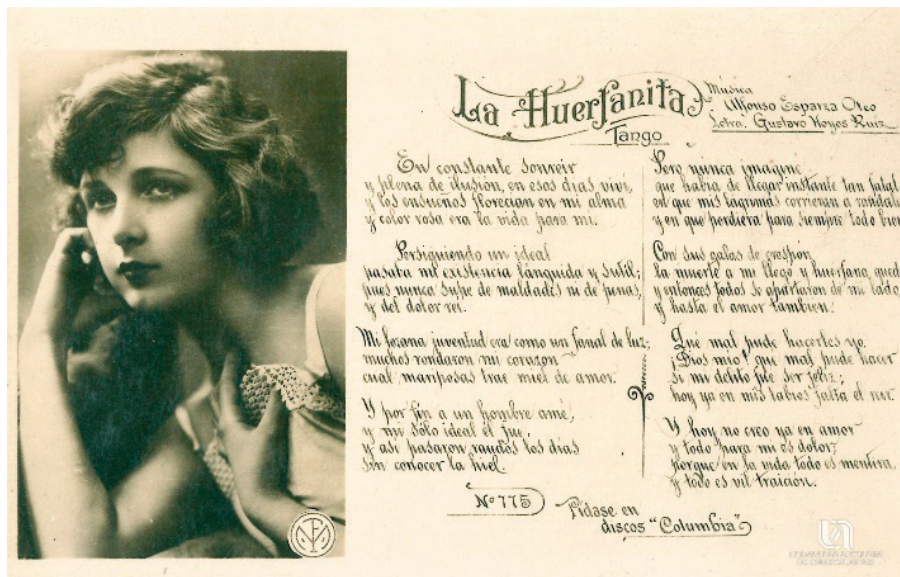 La Huerfanita
Tango
Música
Alfonso Esparza Oteo
Letra. Gustavo Hoyos Ruiz
En constante sonreir
y plena de ilusión, en esos dias viví,
y los ensueños florecian en mi alma
y color rosa era la vida para mi.
Persiguiendo un ideal
pasaba mi existencia lánguida y sutil;
pues nunca supe de maldades ni de penas,
y del dolor reí.
Mi lozana juventud era como un fanal de luz;
muchos rondaron mi corazon
cual mariposas trae miel de amor.
Y por fin a un hombre amé,
y mi sólo ideal el fue,
y asi pasaron raudos los dias
sin conocer la hiel.
Pero nunca imaginé
que habia de llegar instante tan fatal
en que mis lágrimas corrieran a raudale
y en que perdiera para siempre todo bien
Con sus galas de crespón,
la muerte a mi llegó y huérfana qued
y entonces todos se apartaron de mi lado,
y hasta el amor tambien.
Qué mal pude hacerles yo,
¡Dios mio! qué mal pude hacer
si mi delito fue ser feliz;
hoy ya en mis labios falta el reir.
Y hoy no creo ya en amor
y todo para mi es dolor;
porque en la vida todo es mentira,
y todo es vil traición.
Nº 775
Pidase en
discos "Columbia"